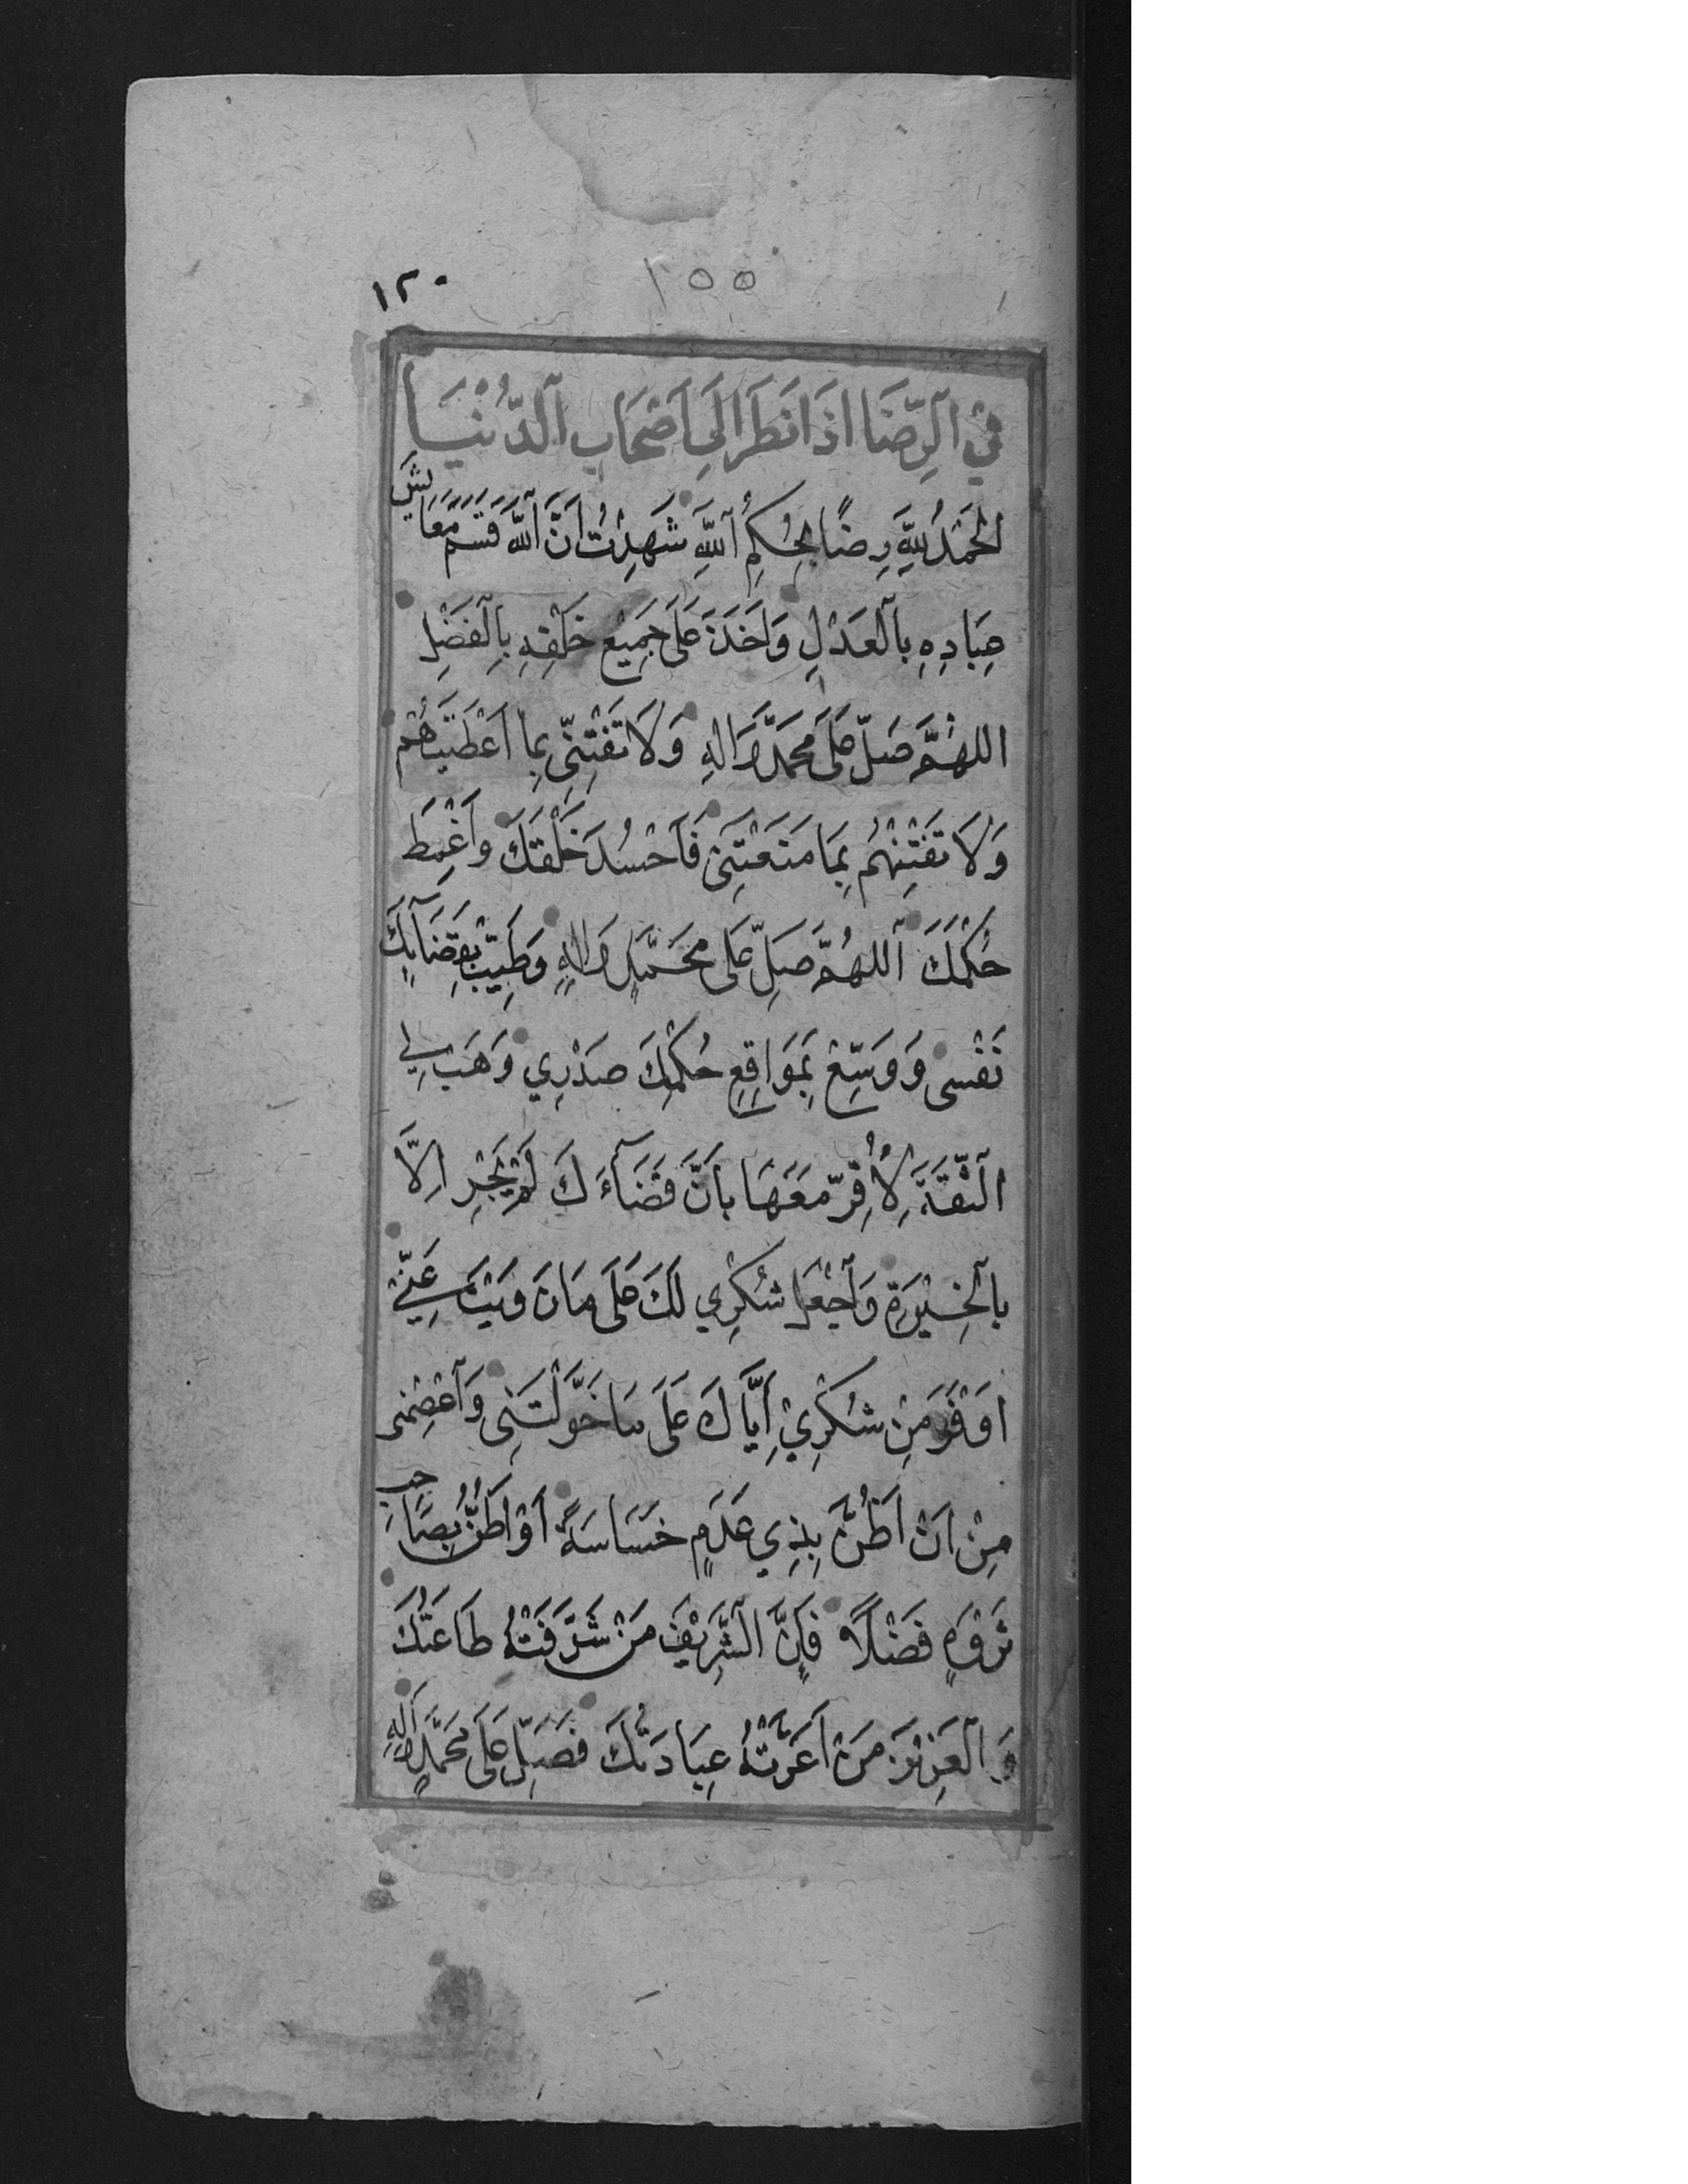 ١٢٠
١٥٥
فِي ٱلرِّضَا اِذَا نَظَرَ اِلَى اَصْحَابِ ٱلدُّنْيَا
اَلْحَمْدُ لِلّٰهِ رِضًا بِحُكْمِ ٱللّٰهِ شَهِدْتُ اَنَّ ٱللّٰهَ قَسَمَ مَعَايِشَ
عِبَادِهِ بِٱلْعَدْلِ وَاَخَذَ عَلَى جَمِيْعِ خَلْقِهِ بِٱلْفَضْلِ
اللهُمَّ صَلِّ عَلَى مُحَمَّدٍ وَالِهِ وَلَا تَفْتِنِّى بِمَا اَعْطَيْتَهُمْ
وَلَا تَفْتِنْهُمْ بِمَا مَنَعْتَنِى فَاَحْسُدَ خَلْقَكَ وَاَغْمِطَ
حُكْمَكَ ٱللهُمَّ صَلِّ عَلَى مُحَمَّدٍ وَالِهِ وَطَيِّبْ بِقَضَآئِكَ
نَفْسِى وَوَسِّعْ بِمَوَاقِعِ حُكْمِكَ صَدْرِي وَهَبْ لِي
ٱلثِّقَةَ لِاُقِرَّ مَعَهَا بِاَنَّ قَضَآءَكَ لَمْ يَجْرِ اِلَّا
بِٱلْخِيَرَةِ وَٱجْعَلْ شُكْرِي لَكَ عَلَى مَا زَوَيْتَ عَنِّي
اَوْفَرَ مِنْ شُكْرِيْ اِيَّاكَ عَلَى مَا خَوَّلْتَنِى وَٱعْصِمْنِى
مِنْ اَنْ اَظُنَّ بِذِي عَدَمٍ خَسَاسَةً اَوْ اَظُنَّ بِصَاحِبِ
ثَرْوَةٍ فَضْلًا فَاِنَّ الشَّرِيْفَ مَنْ شَرَّفَتْهُ طَاعَتُكَ
وَٱلْعَزِيْزَ مَنْ اَعَزَّتْهُ عِبَادَتُكَ فَصَلِّ عَلَى مُحَمَّدٍ وَالِهِ